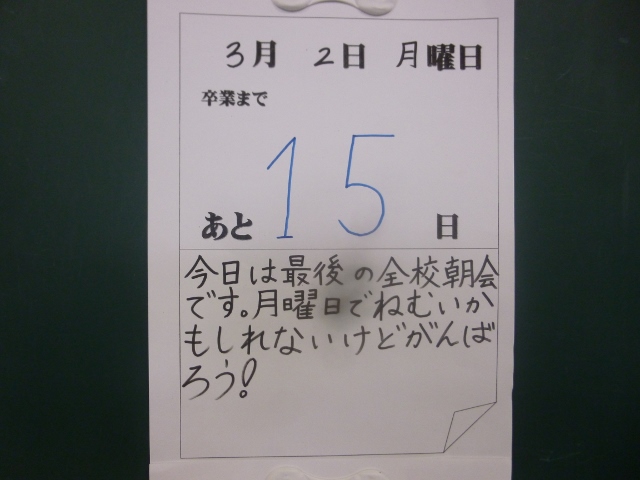 3月 2日 月曜日
卒業まで
あと 15 日
今日は最後の全校朝会
です。月曜日でねむいか
もしれないけどがんば
ろう!